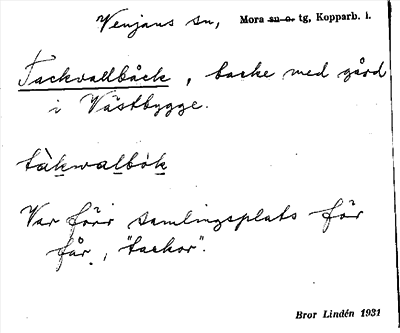 Venjans sn, Mora su o. tg, Kopparb. l.
Tackvallbäck, backe med gård
i Västbygge.
tàkwalbòk
Var förr samlingsplats för
får, "tackor".
Bror Lindén 1931